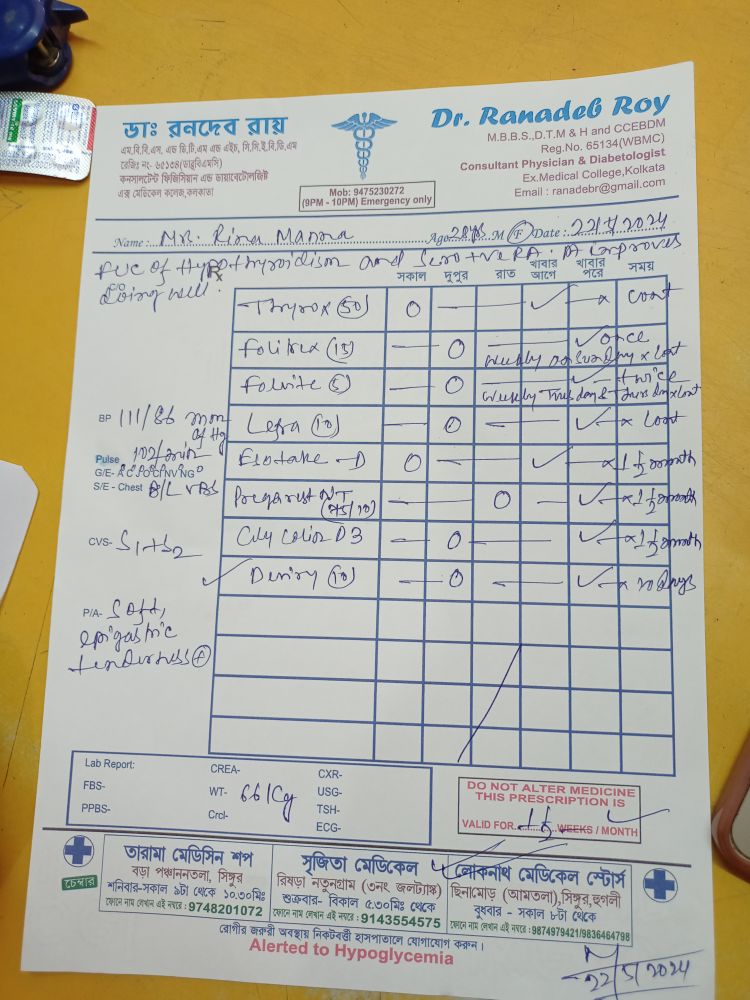 ডাঃ রনদেব রায়
এম.বি.বি.এস, এন্ড ডি,টি,এম এন্ড এইচ, সি,সি,ই,বি,ডি,এম
রেজিঃ নং- ৬৫১৩৪(ডাব্লুবিএমসি)
কনসালটেন্ট ফিজিসিয়ান এন্ড ডায়াবেটোলজিষ্ট
এক্স মেডিকেল কলেজ,কলকাতা
Mob: 9475230272
(9PM - 10PM) Emergency only
Dr. Ranadeb Roy
M.B.B.S.,D.T.M & H and CCEBDM
Reg.No. 65134(WBMC)
Consultant Physician & Diabetologist
Ex.Medical College,Kolkata
Email : ranadebr@gmail.com
Name : Mrs. Rina Manna Age 28 yrs M (F) Date : 22/5/2024
FUC of Hypothyroidism and Sero +ve RA. Pt improves
C/O Doing well.
Rx
সকাল দুপুর রাত খাবার আগে খাবার পরে সময়
Thyrox (50) O — — ✓ — x cont
Folitrax (15) — O — ✓ once
weekly on sunday x cont
Folvite (5) — O — twice
weekly Tues day & x cont
BP 111/86 mm of Hg
(10) — O — — ✓ x cont
Pulse 102/min
Esotake-D O — — ✓ — x 1 1/2 month
G/E-
S/E - Chest B/L VBS
Pregarest NT (75/10) — — O — ✓ x 1 1/2 month
CVS- S1+S2
D3 — O — — ✓ x 1 1/2 month
✓ (10) — O — — ✓ x days
P/A- Soft,
epigastric
tenderness (+)
Lab Report:
FBS-
PPBS-
CREA-
WT- 66 Kg
Crcl-
CXR-
USG-
TSH-
ECG-
DO NOT ALTER MEDICINE
THIS PRESCRIPTION IS
VALID FOR 1 1/2 WEEKS / MONTH
চেম্বার
তারামা মেডিসিন শপ
বড়া পঞ্চাননতলা, সিঙ্গুর
শনিবার-সকাল ৯টা থেকে ১০.৩০মিঃ
ফোনে নাম লেখান এই নম্বরে : 9748201072
সৃজিতা মেডিকেল
রিষড়া নতুনগ্রাম (৩নং জলট্যাঙ্ক)
শুক্রবার- বিকাল ৫.৩০মিঃ থেকে
ফোনে নাম লেখান এই নম্বরে : 9143554575
লোকনাথ মেডিকেল স্টোর্স
ছিনামোড় (আমতলা),সিঙ্গুর,হুগলী
বুধবার - সকাল ৮টা থেকে
ফোনে নাম লেখান এই নম্বরে : 9874979421/9836464798
রোগীর জরুরী অবস্থায় নিকটবর্ত্তী হাসপাতালে যোগাযোগ করুন।
Alerted to Hypoglycemia
22/5/2024